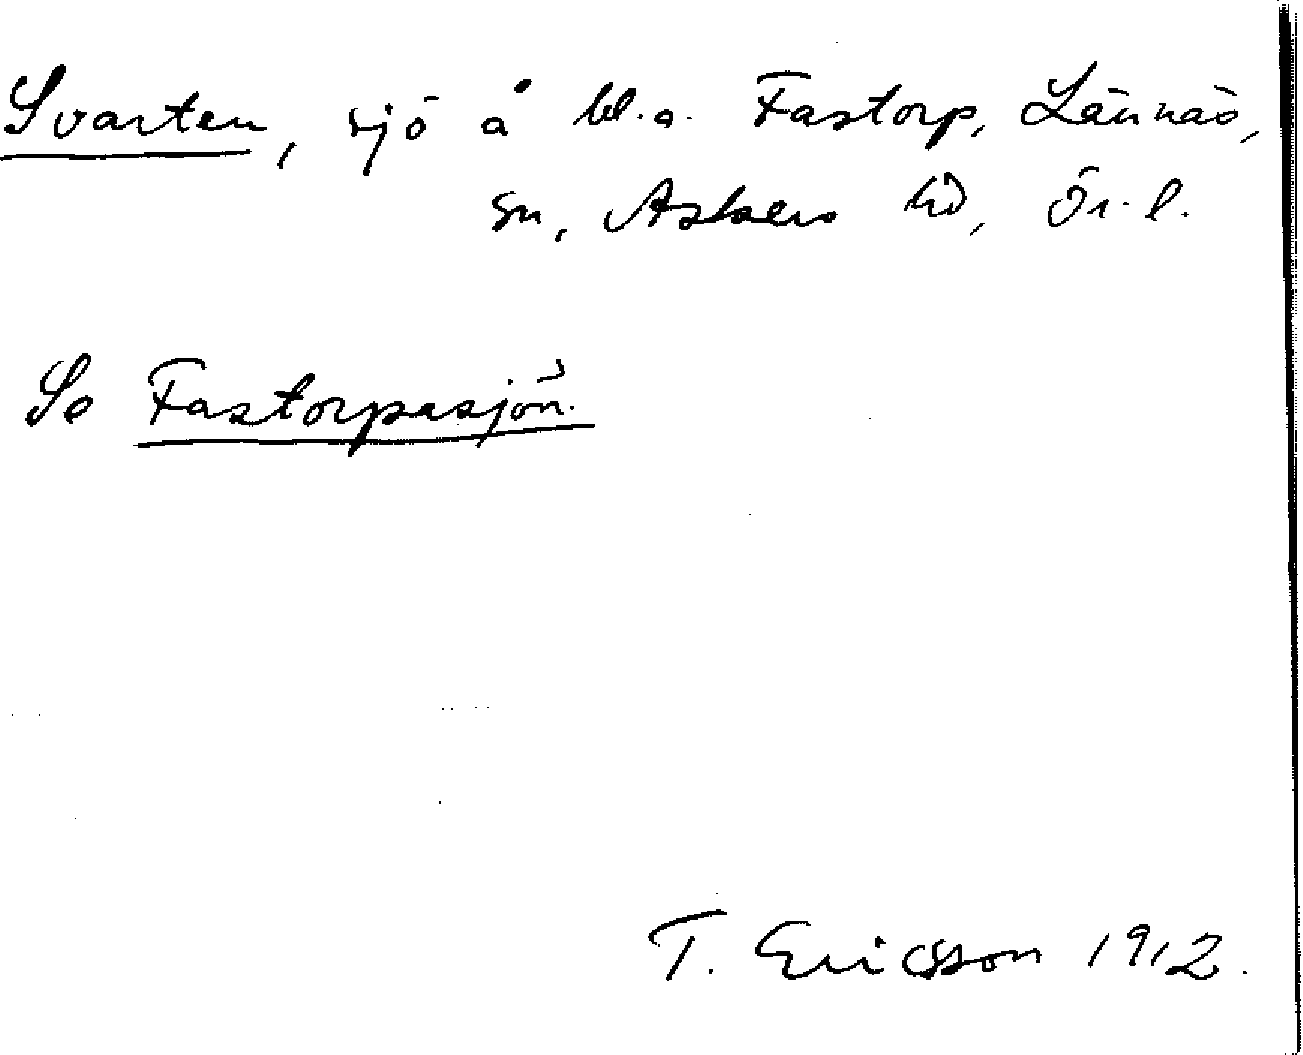 Svarten, sjö å bl.a. Fastorp, Lännäs,
sn, Askers hd, Ör. l.
Se Fastorpasjön.
T. Ericsson 1912.